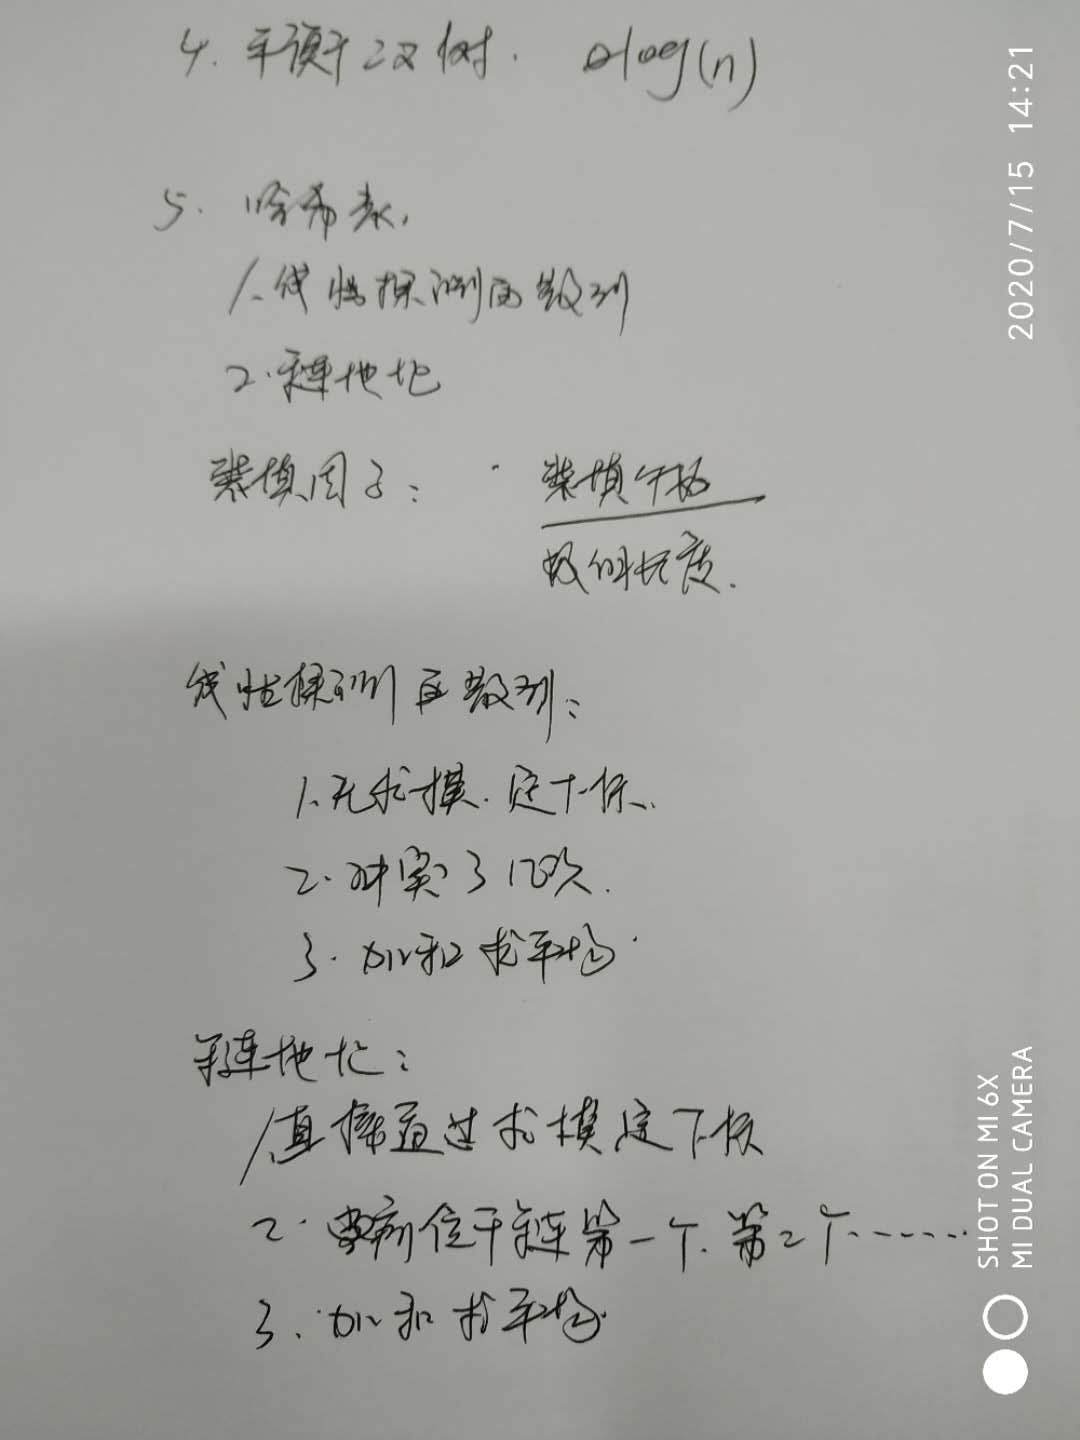 4. 平衡二叉树. Olog(n)
5. 哈希表,
1.线性探测再散列
2.链地址
装填因子: 装填个数
数组长度.
线性探测再散列:
1.先求模.定下标.
2.冲突了几次.
3.加和求平均.
链地址:
1直接通过求模定下标
2.当前位于链第一个.第2个......
3.加和求平均.
2020/7/15 14:21
SHOT ON MI 6X
MI DUAL CAMERA